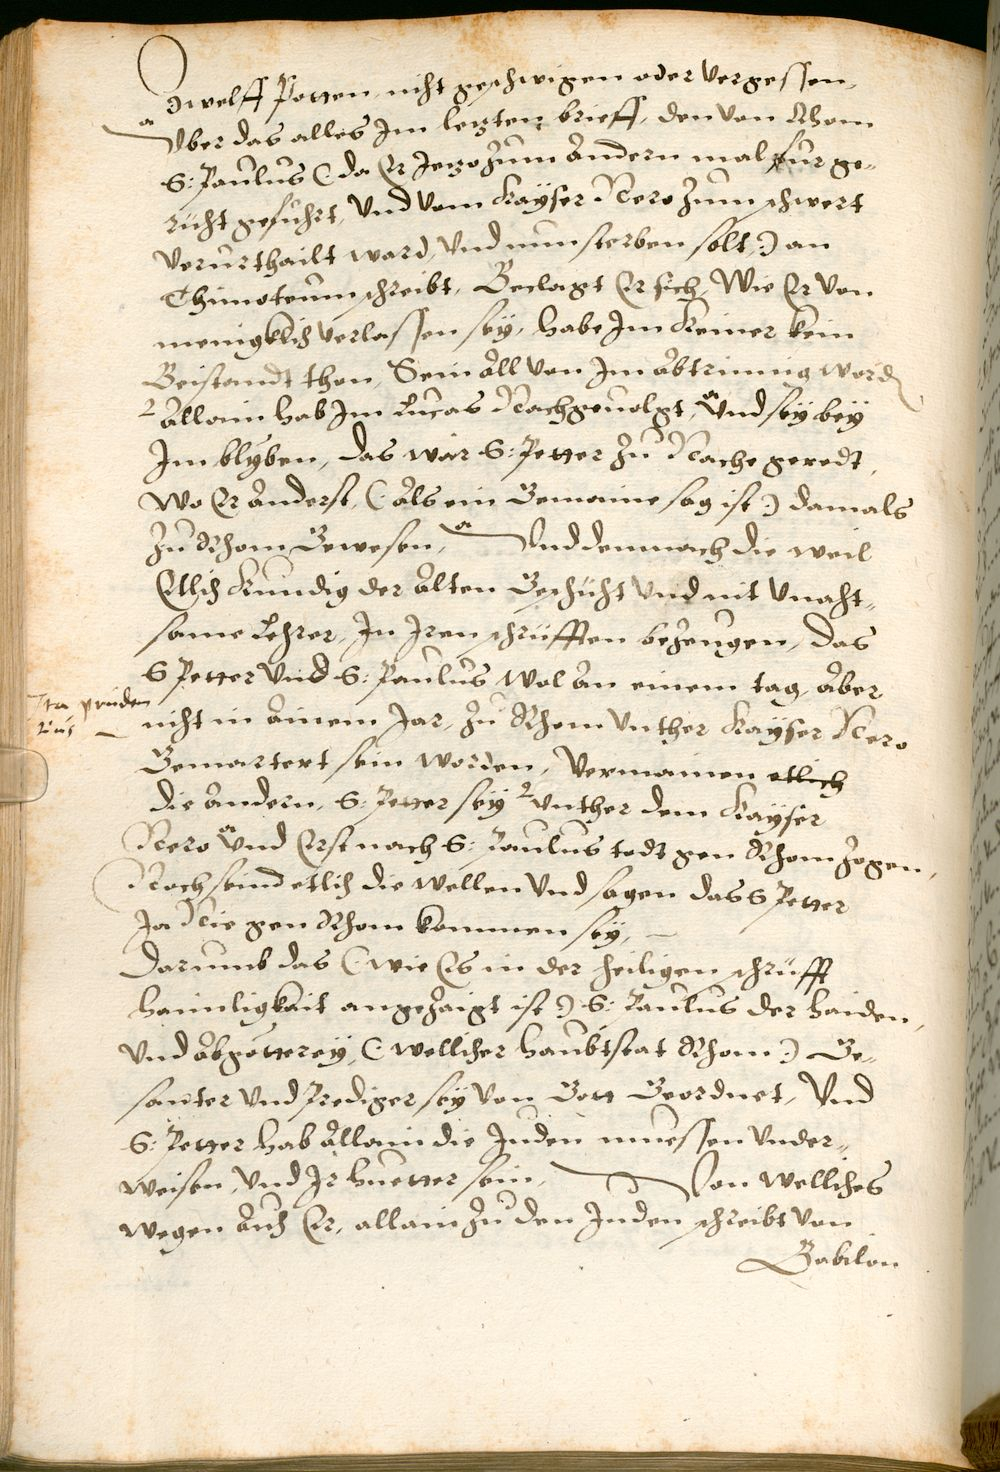 Zwelff Potten, nicht geschwigen oder vergessen,
Vber das alles Im letzten brieff, den von Rhom
S: Paulus (: da Er Jetzo zum andern mal fur ge-
richt gefuhrt, Vnd vom Kayser Nero zum schwert
verurthailt ward, Vnd nun sterben solt :) an
Thimoteum schreibt, Beclagt Er sich, Wie Er von
menigklich verlassen sey, habe Im Keiner kein
Beistandt thon, Sein all von Im abtrinnig word
Allain hab Im Lucas Nachgeuolgt, Vnd sey bey
Im blyben, das war S: Petter zu Nache geredt,
Wo Er anderst, (: als ein Gemaine sag ist :) damals
zu Rhom Gewesen, Vnd demnach die weil
Etlich Kundig der alten Geschicht vnd nit vnacht-
same Lehrer, In Iren schrifften bezeugen, das
S Petter vnd S: Paulus wol an einem tag, aber
Ita pruden
tius
nicht in ainem Jar, zu Rhom vnther Kayser Nero
Gemartert sein worden, Vermainen etlich
die andern, S: Petter sey vnther dem Kayser
Nero Vnd Erst nach S: Paulus todt gen Rhom zogen,
Noch seind etlich die wellen Vnd sagen das S Petter
Ja Nie gen Rhom kommen sey,
Darumb das (: wie Es in der heiligen schrifft
hainligkait angezaigt ist :) S: Paulus der haiden,
Vnd abgötterey (: wellicher haubtstat Rhom :) Ge-
santer Vnd Prediger sey von Gott Geordnet, Vnd
S: Petter hab allain die Juden muessen vnder-
weisen, Vnd Ir huetter sein, Von welliches
wegen auch Er, allain zu den Juden schreibt von
Babilon